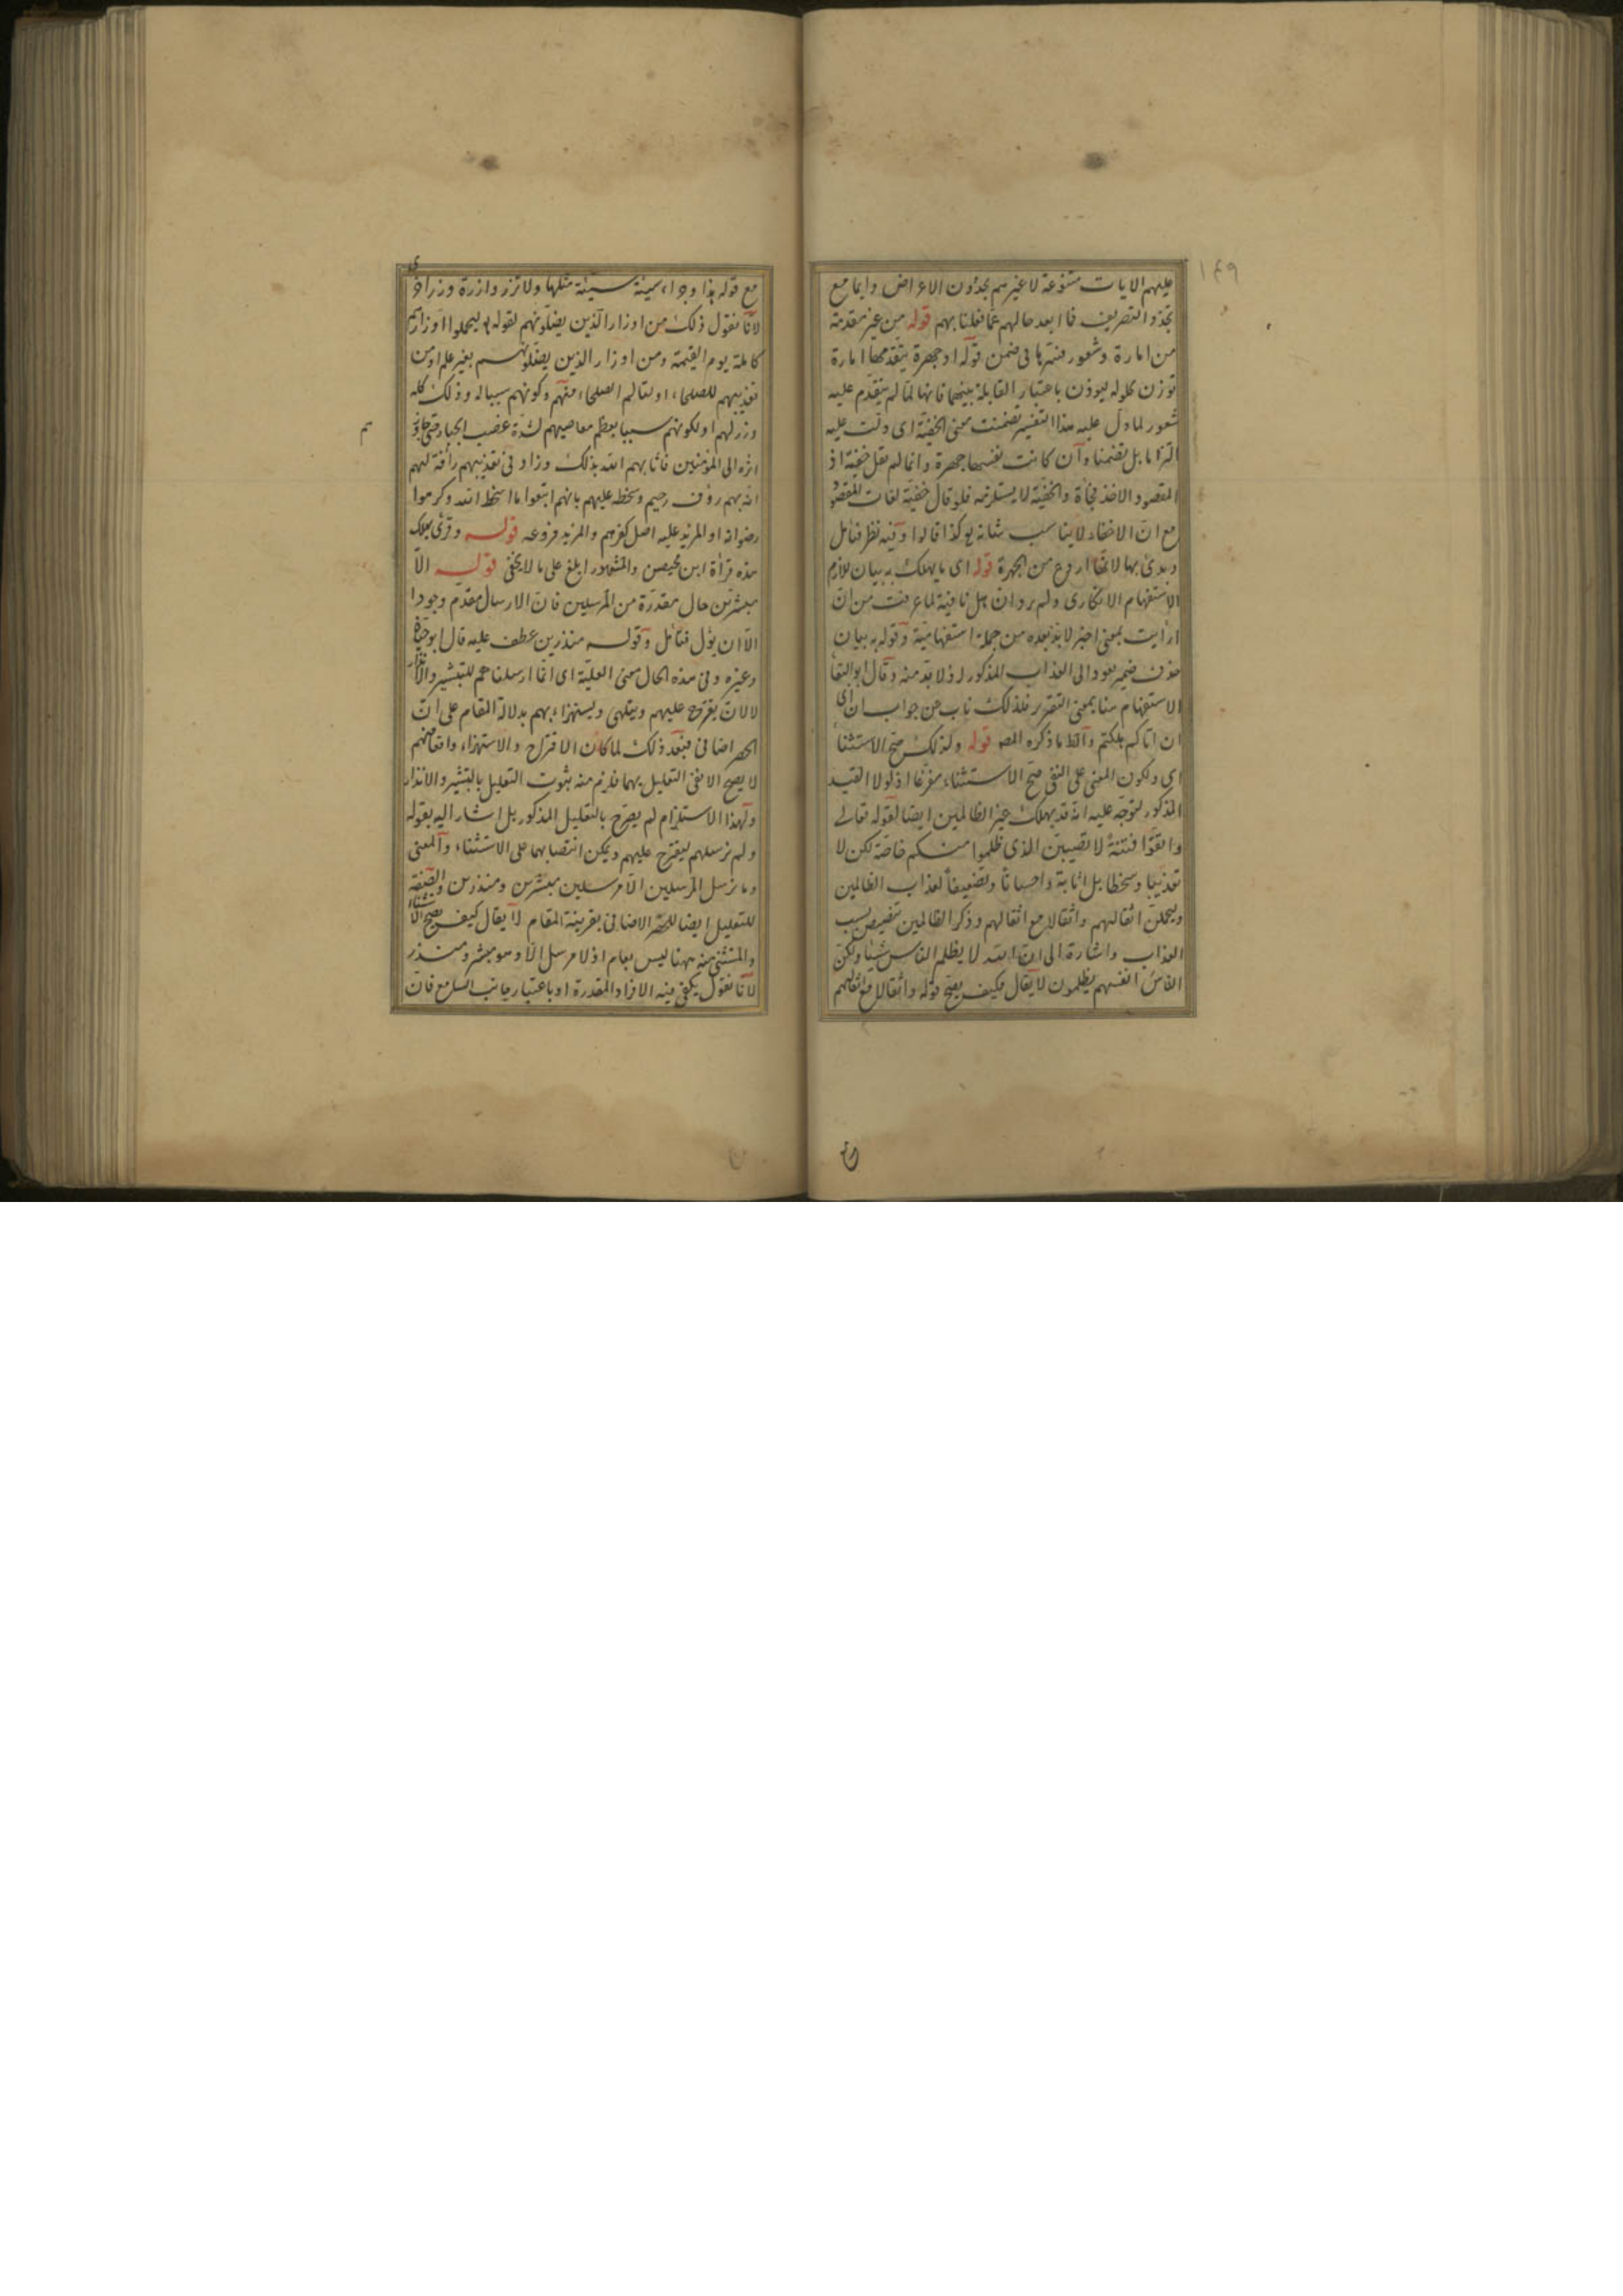 ١٤٩
عليهم الايات متنوعة لاغيرهم يجدون الاعراض وايما مع
تجدد التصريف فما ابعد حالهم عما فعلنا بهم قوله من غير مقدمة
من امارة وشعور فسرها في ضمن قوله او جهرة يتقدمها امارة
توزن بحلوله ليوذن باعتبار المقابلة بينهما فانها لما لم يتقدم عليه
شعور لما دل عليه هذا التفسير تضمنت معنى الخفية اى دلت عليه
التزاما بل تضمنا وان كانت نفسها جهرة وانما لم يقل خفية اذ
المقصود الاخذ فجأة والخفية لا يستلزمه فلو قال خفية لفات المقصود
مع ان الاخفاء لا يناسب شانه هكذا قالوا وفيه نظر فتأمل
وبدئ بها لانها اروع من الجهرة قوله اى ما يهلك به بيان للازم
الاستفهام الانكارى ولم يرد ان هل نافية لما عرفت من ان
ارأيت بمعنى اخبر لا بد بعده من جملة استفهامية وقوله به بيان
حذف ضمير يعود الى العذاب المذكور اذ لا بد منه وقال ابو البقا
الاستفهام هنا بمعنى التقرير فلذلك ناب عن جواب ان اى
ان اتاكم هلكتم والظ ما ذكره المص قوله ولذلك صح الاستثنا
اى ولكون المعنى على النفى صح الاستثناء مفرغا اذ لولا القيد
المذكور لتوجه عليه انه قد يهلك غير الظالمين ايضا لقوله تعالى
واتقوا فتنة لا تصيبن الذى ظلموا منكم خاصة لكن لا
تعذيبا وسخطا بل اثابة واحسانا وتضعيفا لعذاب الظالمين
وليحملن اثقالهم واثقالا مع اثقالهم وذكر الظالمين تنصيص بسبب
العذاب واشارة الى ان الله لا يظلم الناس شيئا ولكن
الناس انفسهم يظلمون لا يقال فكيف يصح قوله واثقالا مع اثقالهم
مع قوله وجزاء سيئة سيئة مثلها ولا تزر وازرة وزر اخرى
لانا نقول ذلك من اوزار الذين يضلونهم لقوله ليحملوا اوزارهم
كاملة يوم القيمة ومن اوزار الذين يضلونهم بغير علم او من
تعذيبهم للصلحاء او لتالم الصلحاء منهم وكونهم سببا له وذلك كله
وزر لهم او لكونهم سببا بعظم معاصيهم لشدة غضب الجبار حتى جاوز
اثره الى المؤمنين فاثابهم الله بذلك وزاد في تعذيبهم رأفة لهم
انه بهم رؤف رحيم وسخطه عليهم بانهم اتبعوا ما اسخط الله وكرهوا
رضوانه او المزيد عليه اصل كفرهم والمزيد فروعه قوله وقرئ يهلك
هذه قراة ابن محيصن والمشهور ابلغ على ما لا يخفى قوله الا
مبشرين حال مقدرة من المرسلين فان الارسال مقدم وجودا
الا ان يؤل فتأمل وقوله منذرين عطف عليه قال ابو حياة
وغيره وفي هذه الحال معنى العلية اى انما ارسلناهم للتبشير والانذار
لا لان يقترح عليهم ويتلهى ويستهزاء بهم بدلالة المقام على ان
الحصر اضافى فبعد ذلك لما كان الاقتراح والاستهزاء واقعا منهم
لا يصح الا نفى التعليل بهما فلزم منه ثبوت التعليل بالتبشير والانذار
ولهذا الاستلزام لم يصرح بالتعليل المذكور بل اشار اليه بقوله
ولم نرسلهم ليقترح عليهم ويمكن انتصابهما على الاستثناء والمعنى
وما نرسل المرسلين الا مرسلين مبشرين ومنذرين والصفة
للتعليل ايضا للحصر الاضافى بقرينة المقام لا يقال كيف يصح الاستثناء
والمستثنى منه ههنا ليس بعام اذ لا مرسل الا وهو مبشر ومنذر
لانا نقول يكفى فيه الافراد المقدرة او باعتبار جانب السامع فان